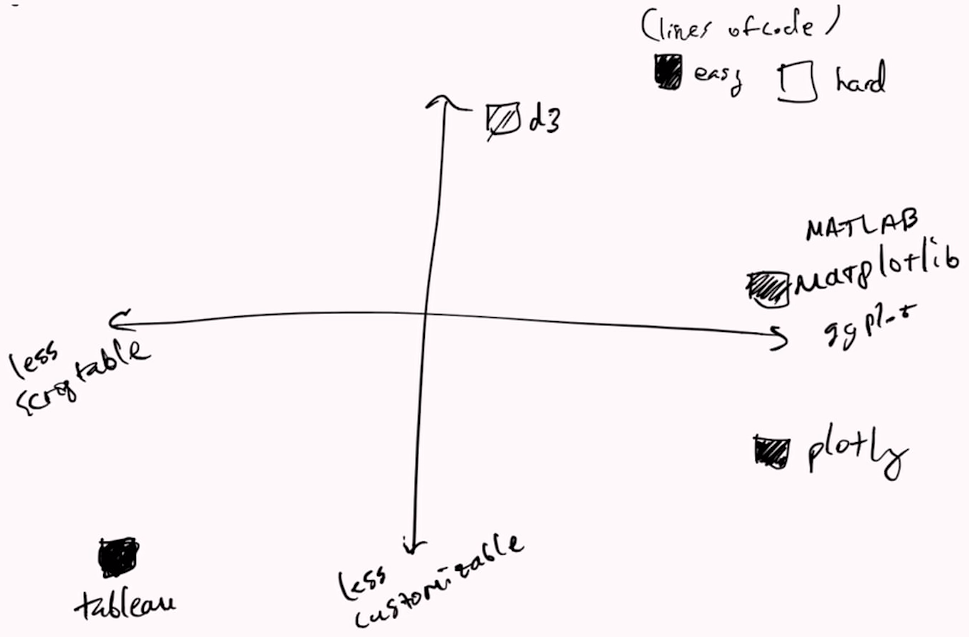 (lines of code)
easy hard
d3
MATLAB
Matplotlib
ggplot
less
scriptable
plotly
less
customizable
tableau